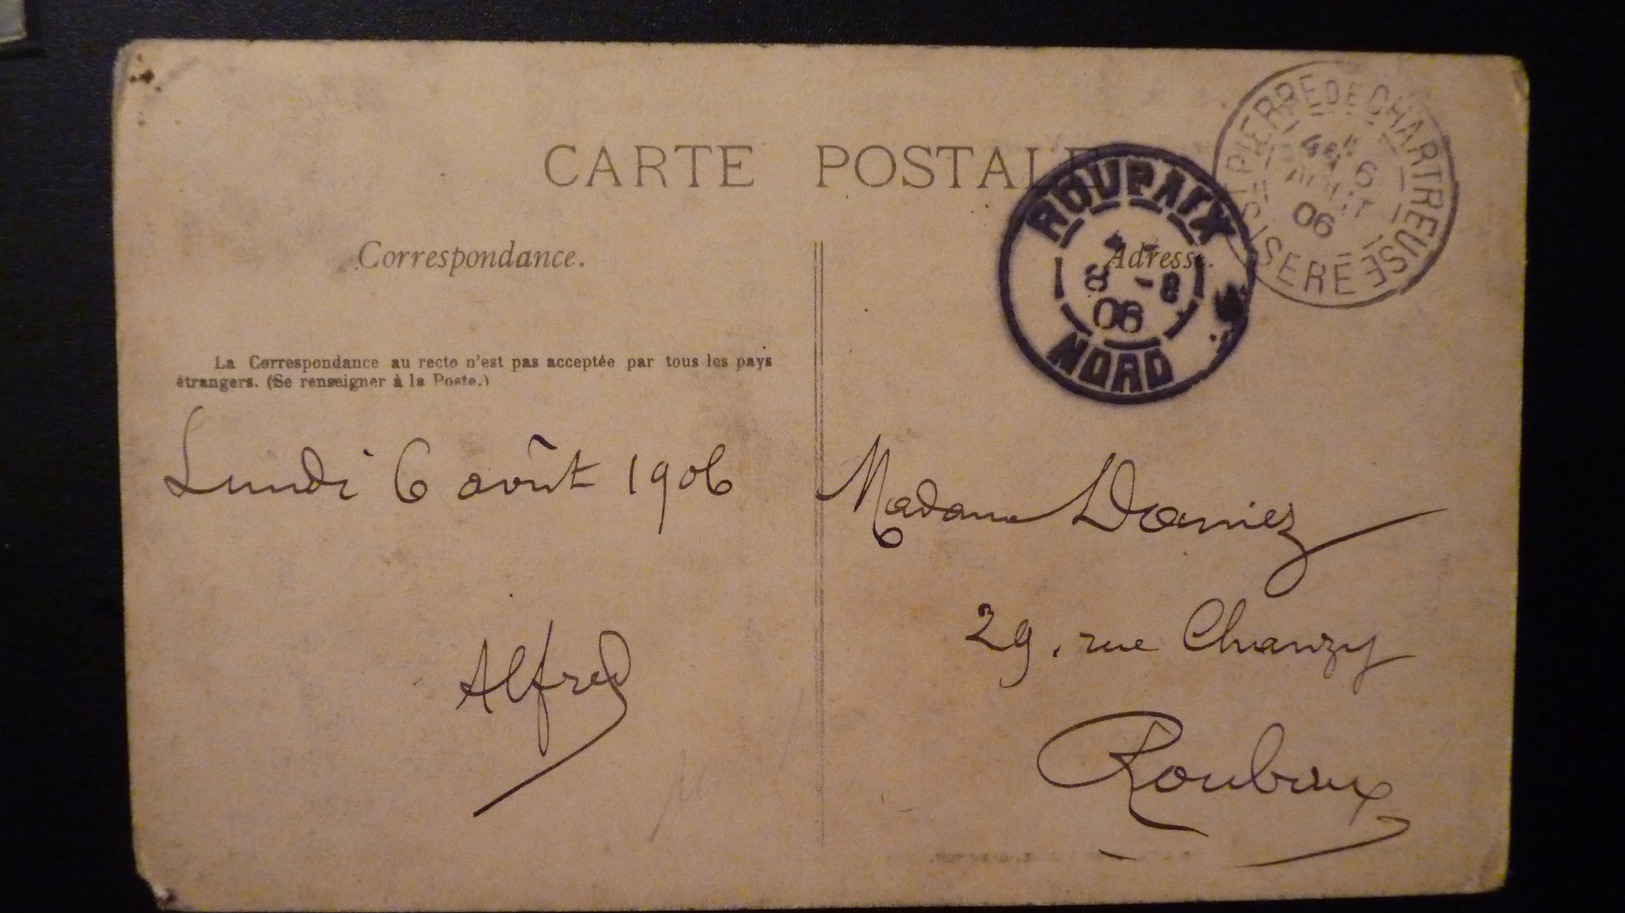 CARTE POSTALE
Correspondance.
Adresse.
La Correspondance au recto n'est pas acceptée par tous les pays
étrangers. (Se renseigner à la Poste.)
ST PIERRE DE CHARTREUSE
6
AOUT
06
ISERE
ROUBAIX
8 -8
06
NORD
Lundi 6 août 1906
Alfred
Madame Darriez
29, rue Chanzy
Roubaix